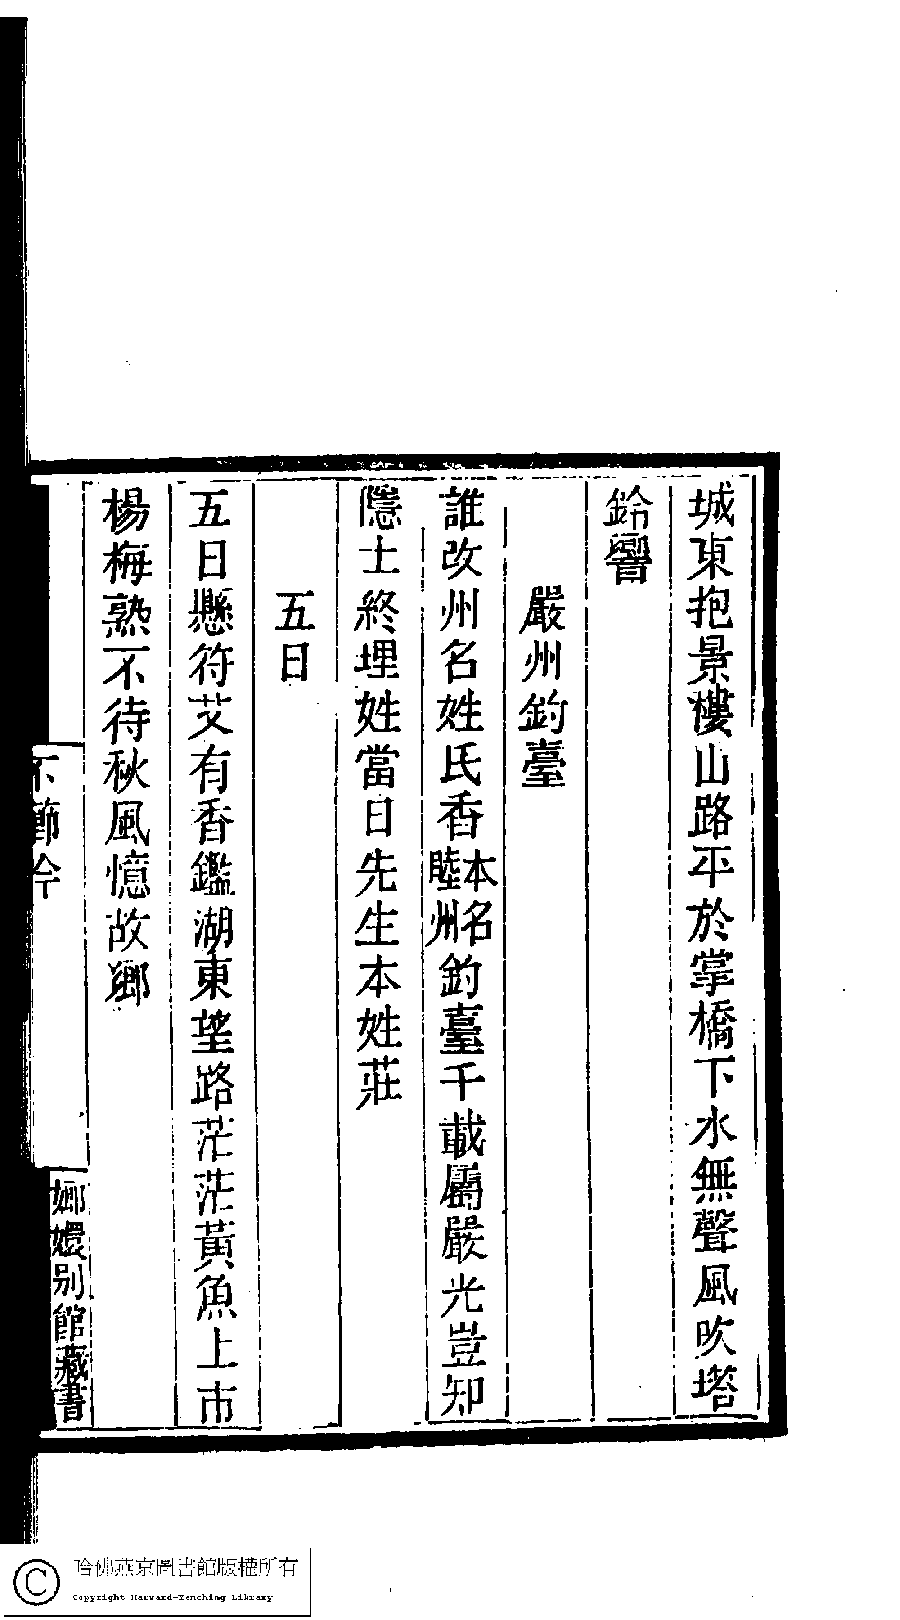 城東抱景樓山路平於掌橋下水無聲風吹塔
鈴響
嚴州釣臺
誰改州名姓氏香本名睦州釣臺千載屬嚴光豈知
隱士終埋姓當日先生本姓莊
五日
五日懸符艾有香鑑湖東望路茫茫黃魚上市
楊梅熟不待秋風憶故鄉
嫏嬛別館藏書
哈佛燕京圖書館版權所有
Copyright Harvard-Yenching Library